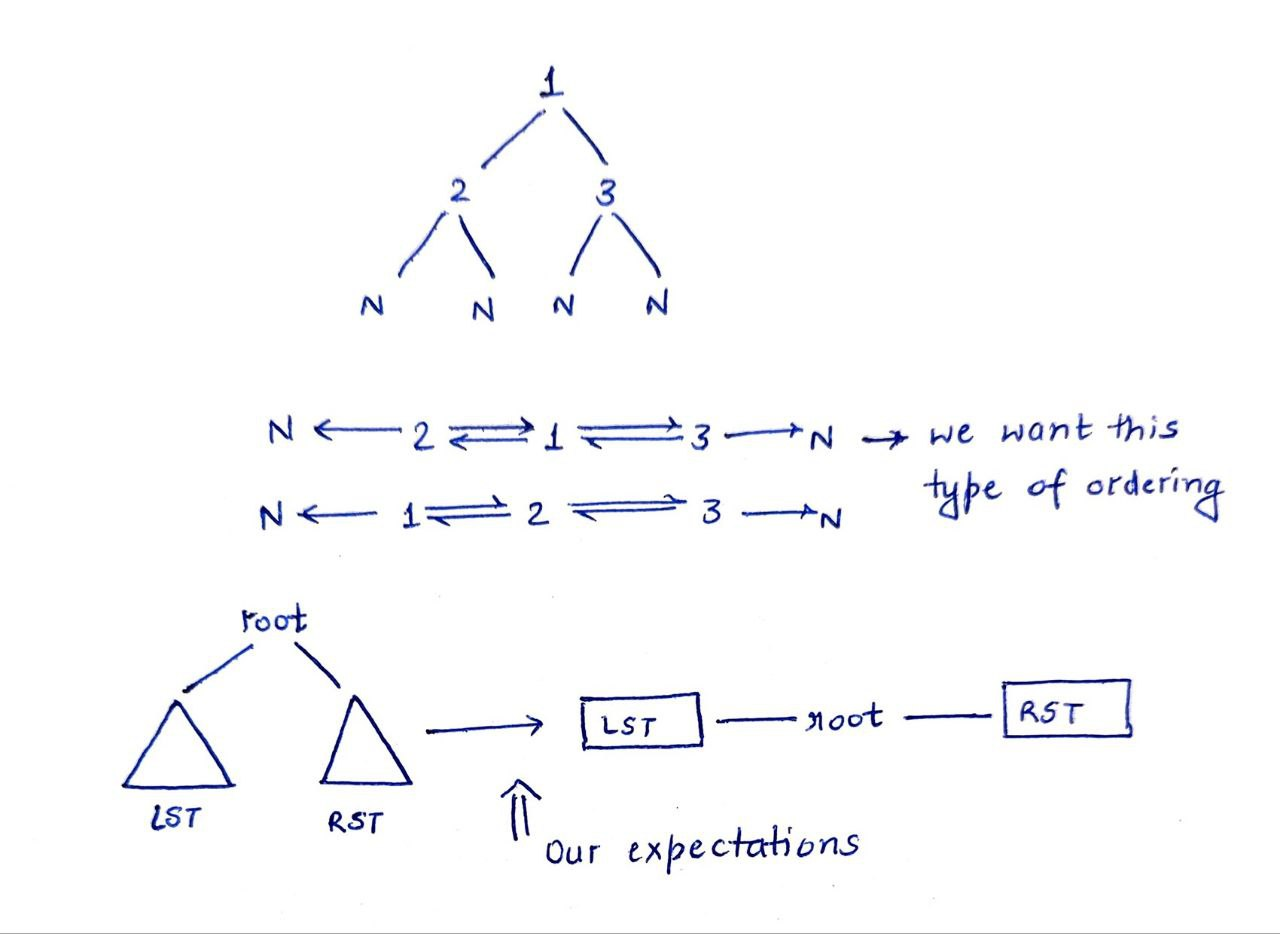 1
2 3
N N N N
N ← 2 ⇌ 1 ⇌ 3 → N → we want this
type of ordering
N ← 1 ⇌ 2 ⇌ 3 → N
root
LST — root — RST
LST RST
Our expectations